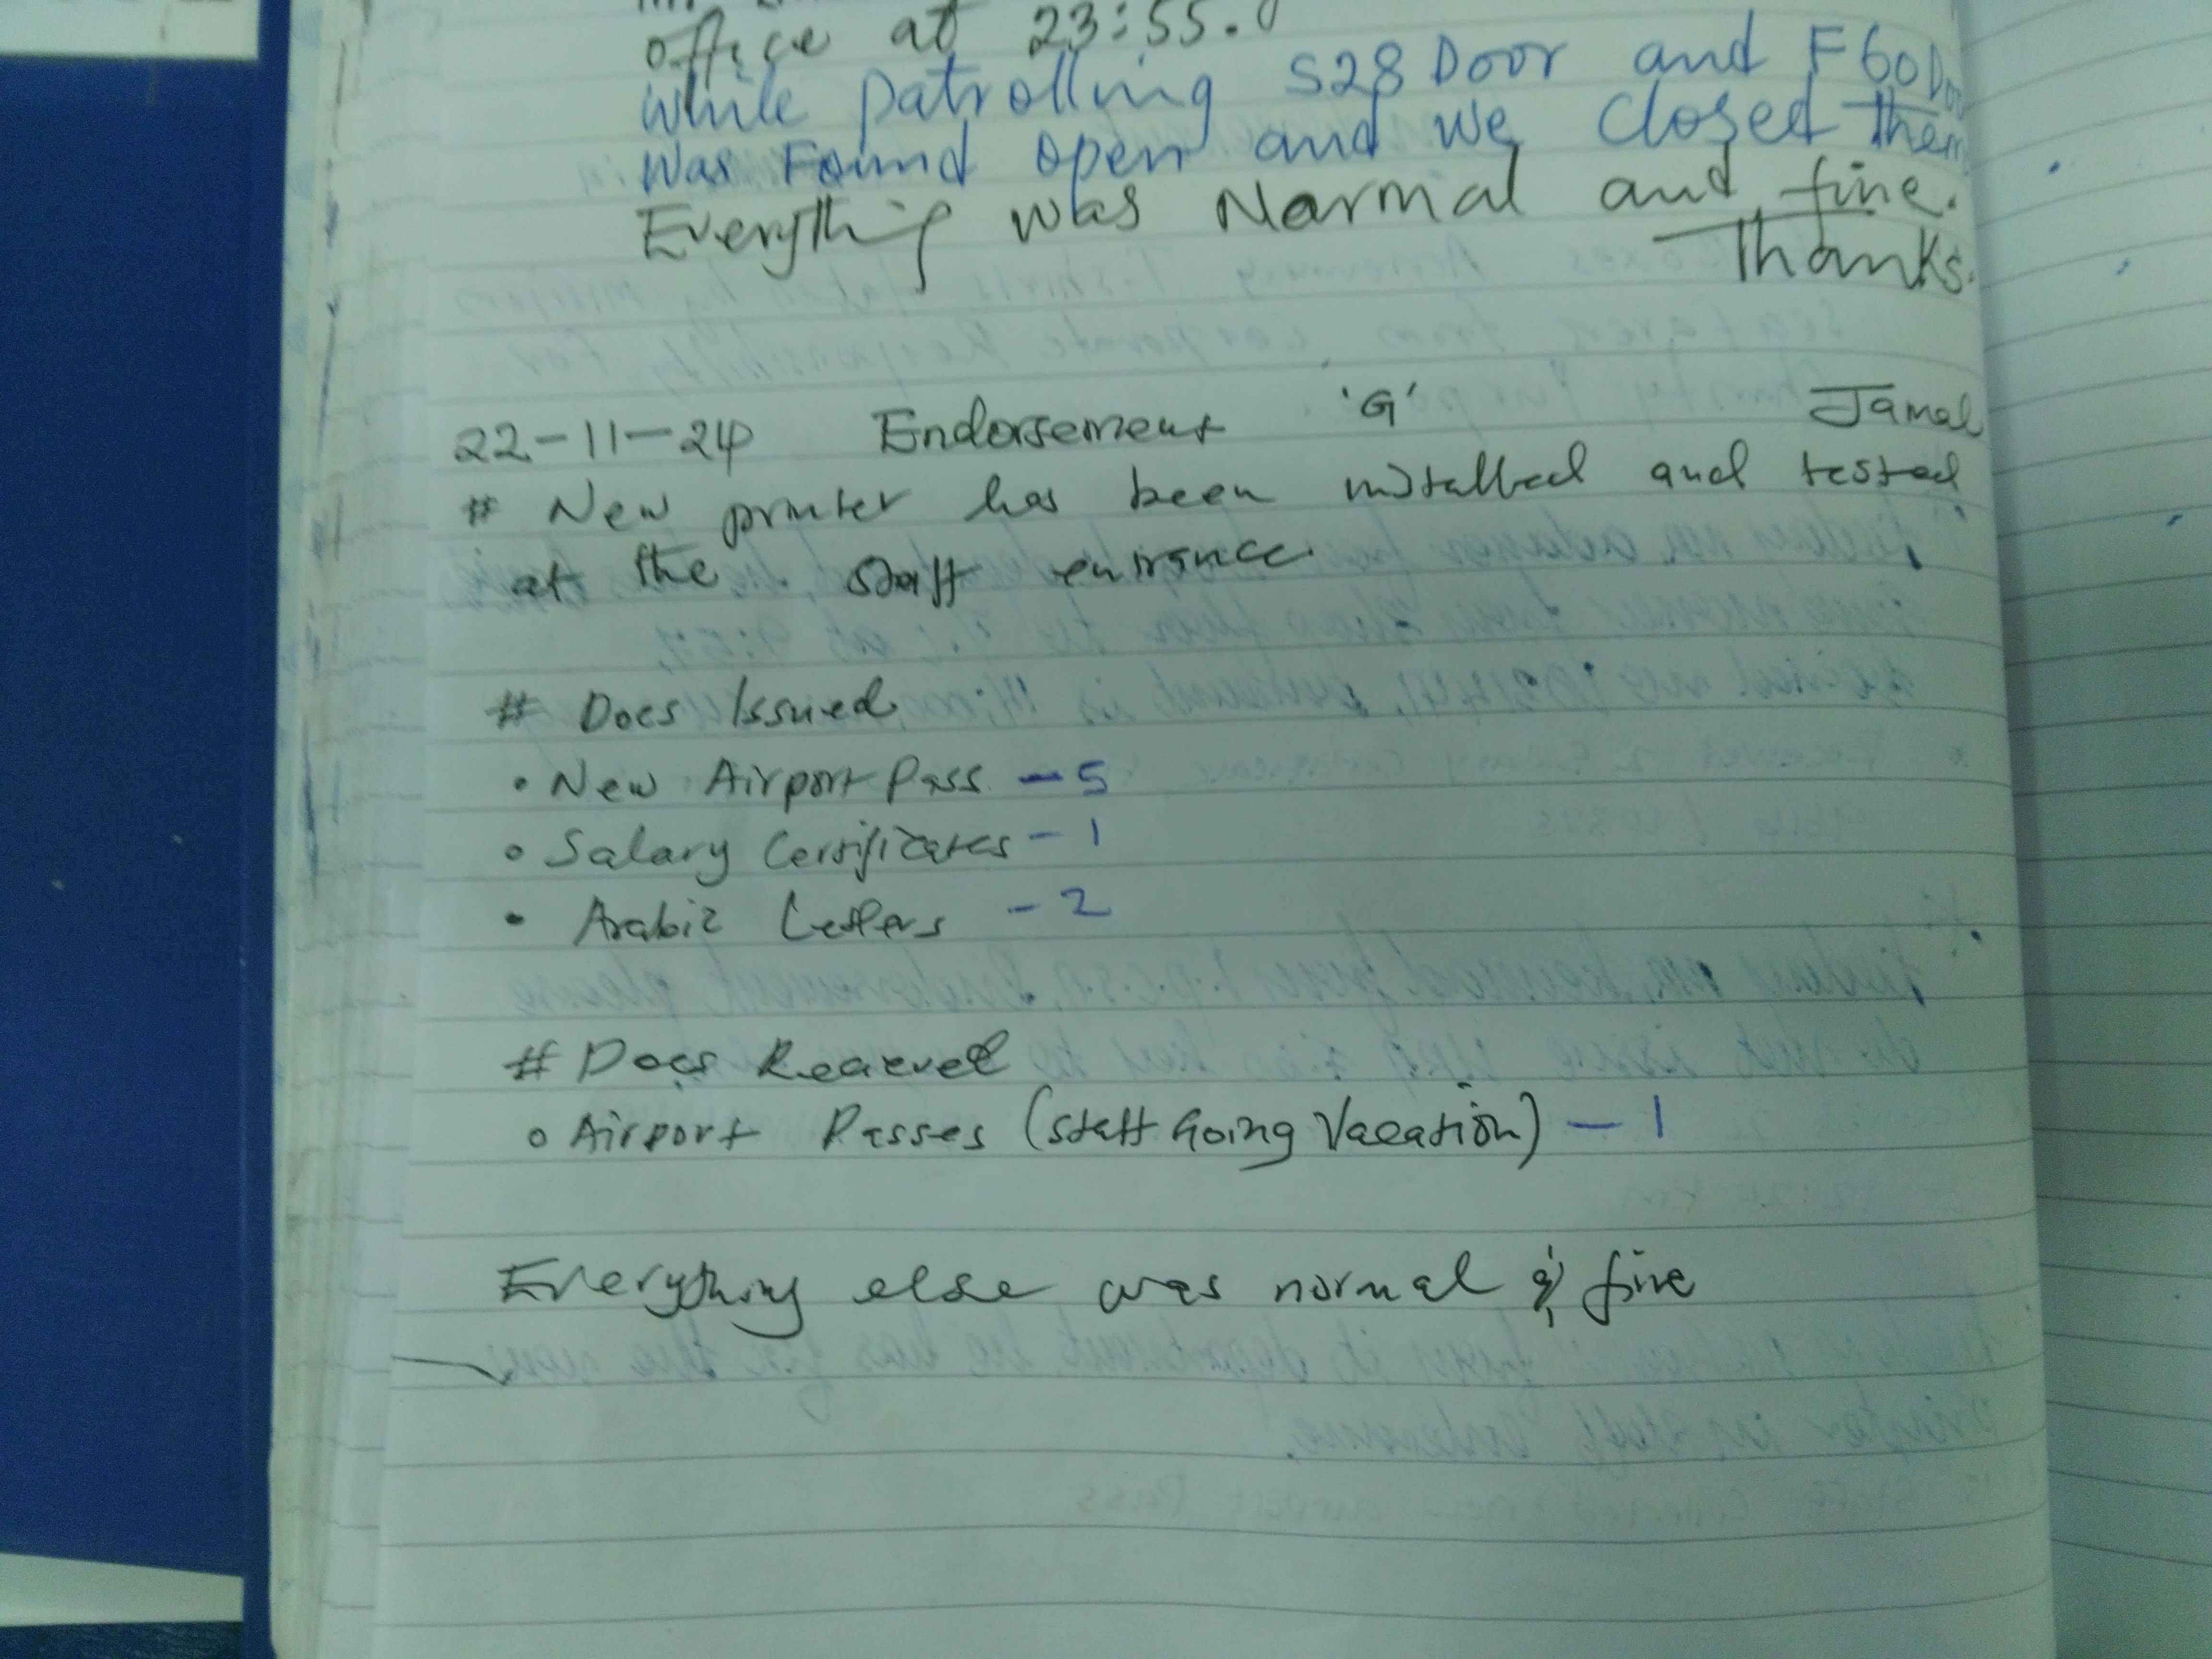 office at 23:55.
while patrolling S28 Door and F60 Door
was Found open and we closed them
Everything was Normal and fine.
Thanks.
22-11-24 Endorsement 'G' Jamal
# New printer has been installed and tested
at the staff entrance.
# Docs Issued
• New Airport Pass - 5
• Salary Certificates - 1
• Arabic Letters - 2
# Docs Recieved
• Airport Passes (Staff Going Vacation) - 1
Everything else was normal & fine